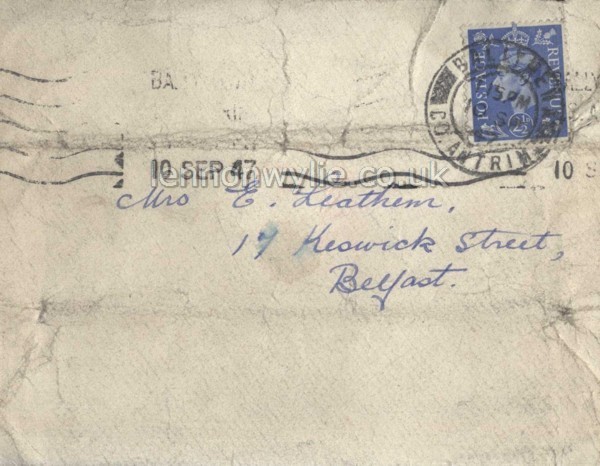 POSTAGE REVENUE
2½
5 PM
CO. ANTRIM
10 SEP 47
10 S
lennonwylie.co.uk
Mrs E. Leathem,
17 Keswick Street,
Belfast.